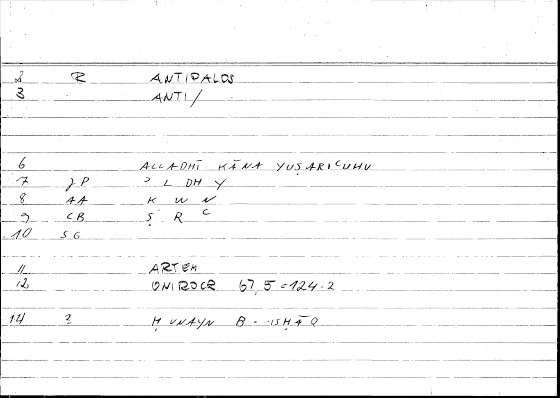 2 R ANTIPALOS
3 ANTI/
6 ALLADHĪ KĀNA YUṢARIʿUHU
7 JP ʾ L DH Y
8 AA K W N
9 CB Ṣ R ʿ
10 SG
11 ARTEM
12 ONIROCR 67,5=124.2
14 2 ḤUNAYN B. ISḤĀQ